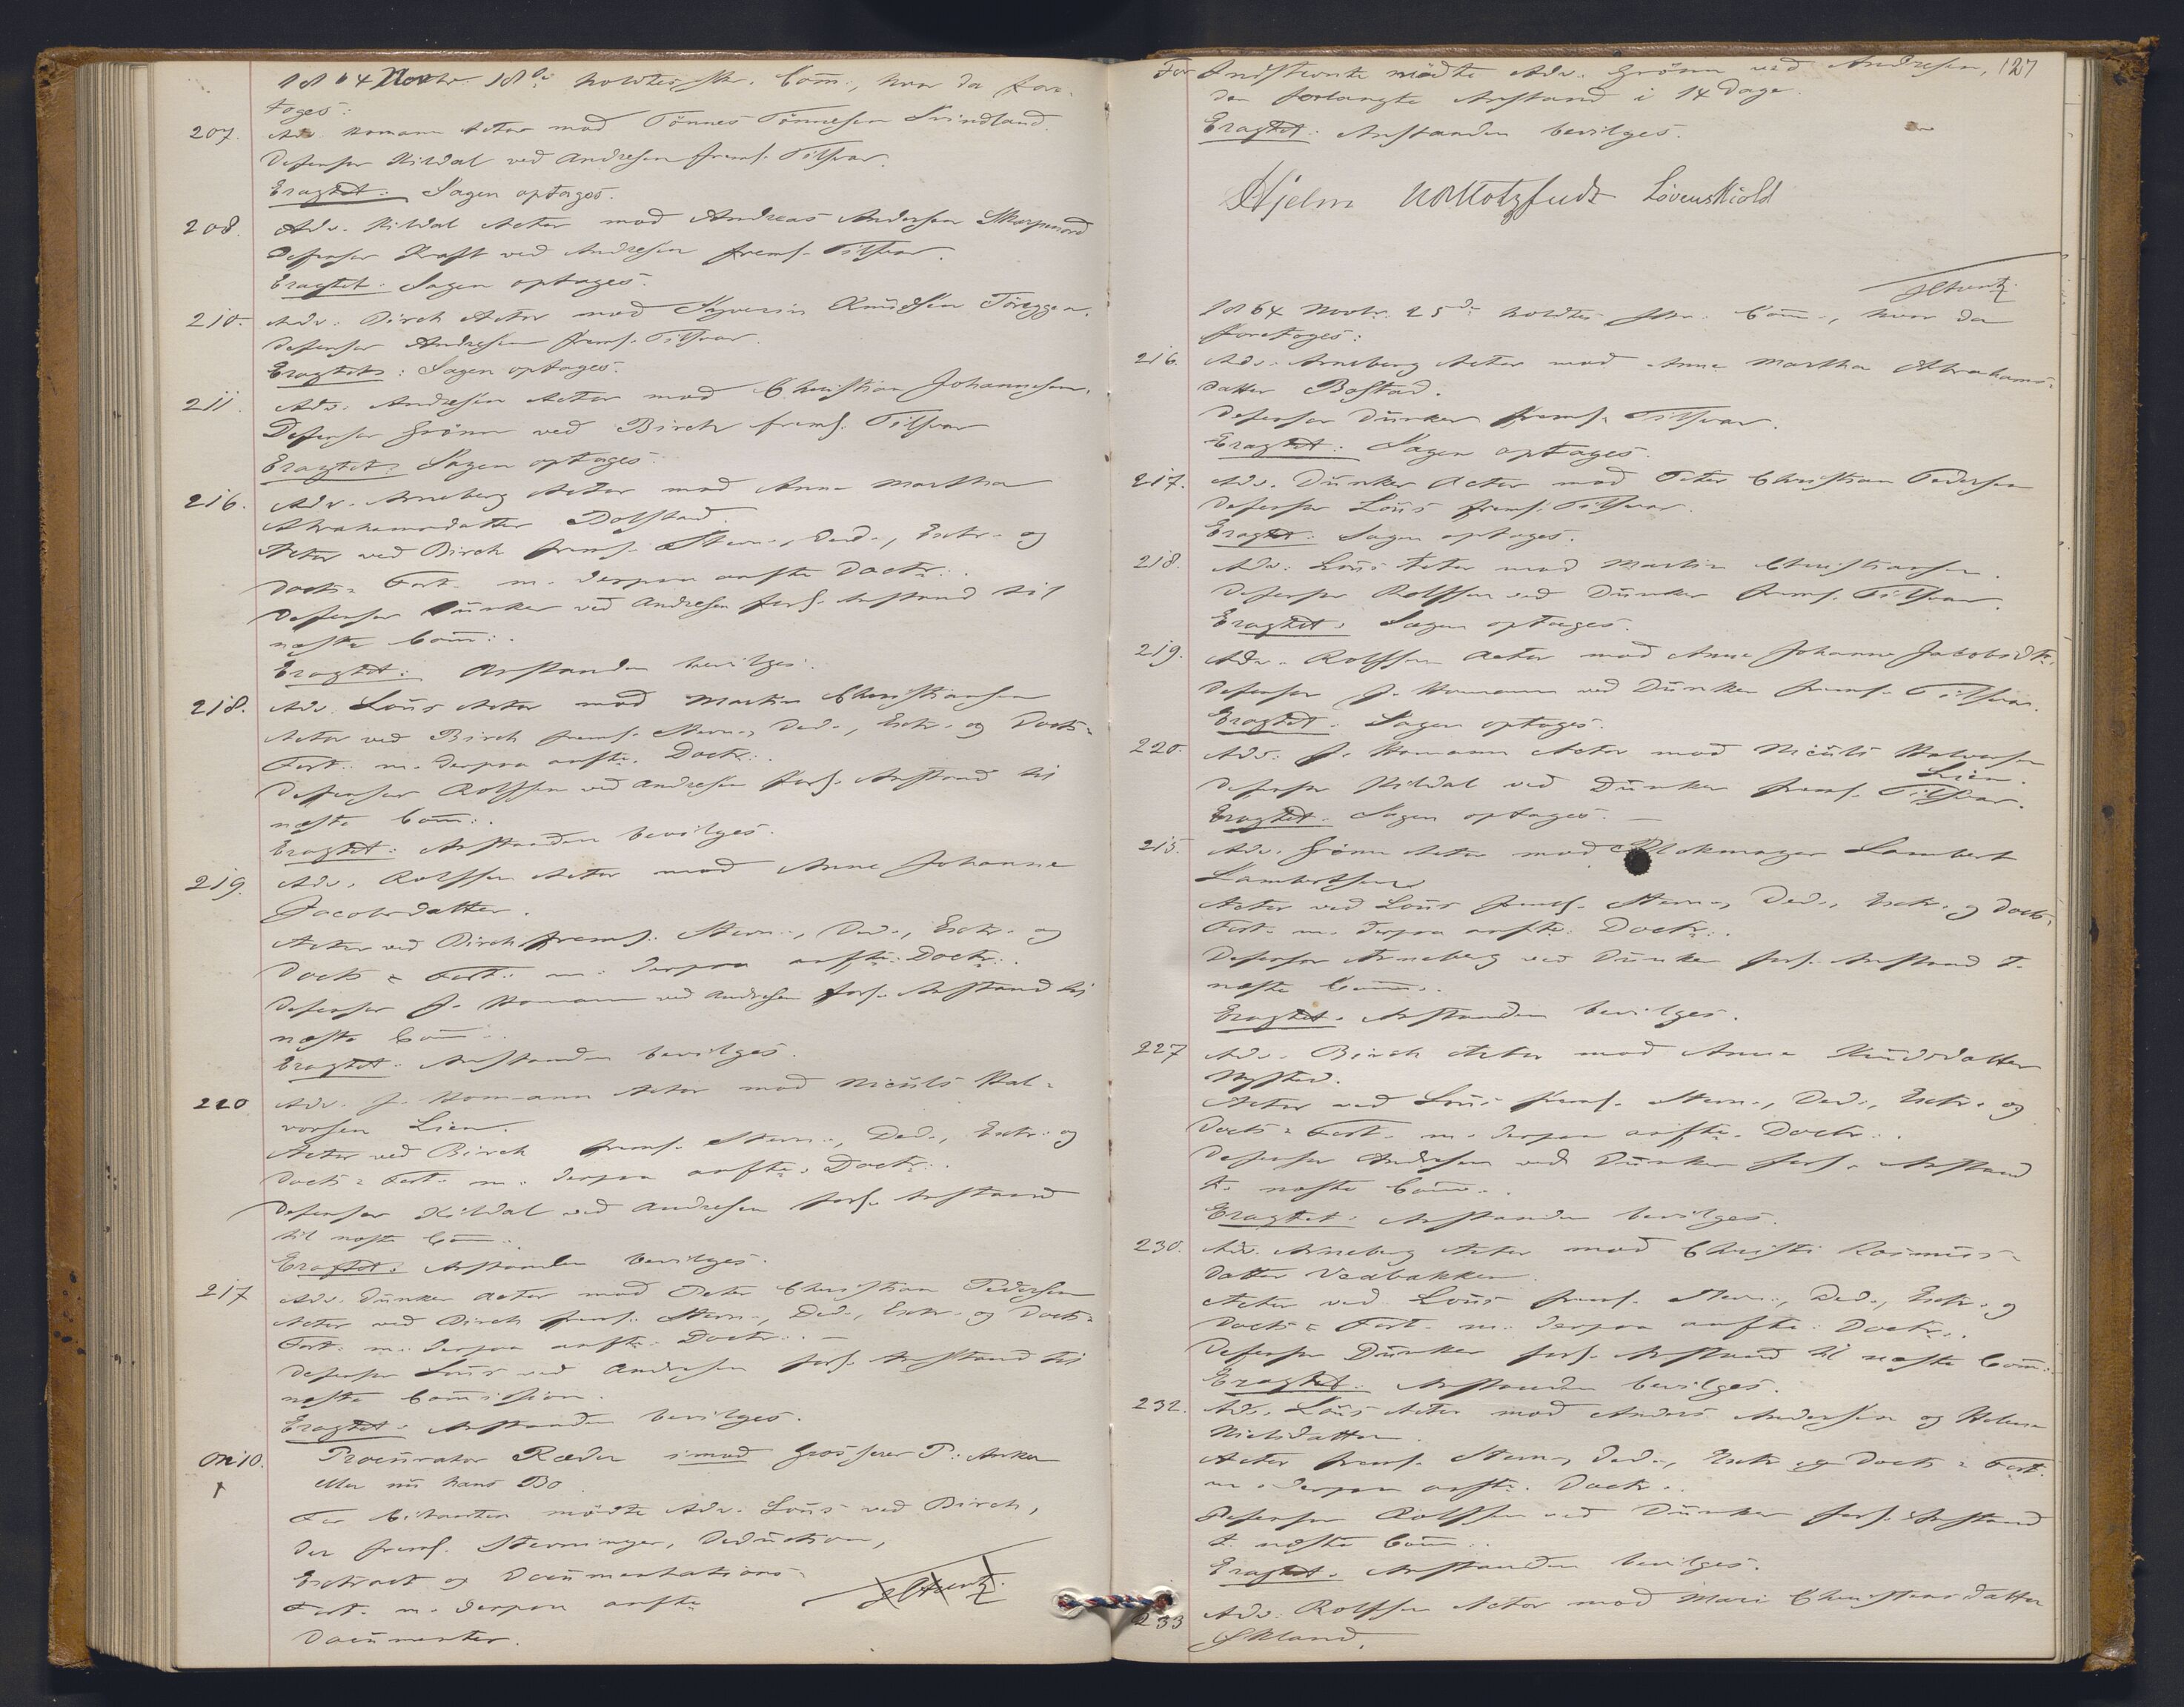 1864 Novbr. 18de holdtes skr. Com:, hvor da fore-
toges:
207. Adv. Homann Actor mod Tönnes Tönnesen Svindland.
Defensor Kildal ved Andresen frems. Tilsvar.
Eragtet: Sagen optages.
208. Adv. Kildal Actor mod Andreas Andersen Skarpnord
Defensor Kraft ved Andresen frems. Tilsvar.
Eragtet: Sagen optages.
210. Adv. Birch Actor mod Syverin Knudsen
Defensor Andresen frems. Tilsvar.
Eragtet: Sagen optages.
211. Adv. Andresen Actor mod Christian Johannesen.
Defensor Grönn ved Birch frems. Tilsvar
Eragtet: Sagen optages.
216. Adv. Arneberg Actor mod Anne Martha
Abrahamsdatter Bolstad.
Actor ved Birch frems. Stevn., Ded., Extr. og
Docts= Fort. m. derpaa anfte Doctr:.
Defensor Dunker ved Andresen fors. Anstand til
næste Com:.
Eragtet: Anstanden bevilges.
218. Adv. Lous Actor mod Martin Christiansen
Actor ved Birch frems. Stevn., Ded., Extr. og Docts=
Fort: m. derpaa anfte. Doctr:.
Defensor Rolfsen ved Andresen fors. Anstand til
næste Com:.
Eragtet: Anstanden bevilges.
219. Adv. Rolfsen Actor mod Anne Johanne
Jacobsdatter.
Actor ved Birch frems. Stevn., Ded., Extr. og
Docts= Fort: m. derpaa anfte: Doctr:.
Defensor J. Homann ved Andresen fors. Anstand til
næste Com:.
Eragtet: Anstanden bevilges.
220 Adv. J. Homann Actor mod Niculs Hal-
vorsen Lien.
Actor ved Birch frems. Stevn., Ded., Extr. og
Docts= Fort. m. derpaa anfte. Doctr:.
Defensor Kildal ved Andresen fors. Anstand
til næste Com:.
Eragtet: Anstanden bevilges.
217 Adv. Dunker Actor mod Peter Christian Pedersen
Actor ved Birch frems. Stevn., Ded., Extr. og Docts=
Fort. m. derpaa anfte. Doctr:. —
Defensor Lous ved Andresen fors. Anstand til
næste Comission.
Eragtet: Anstanden bevilges.
10. Procurator Ræder imod Grosserer P: Anker
eller nu hans Bo
For Citanten mödte Adv. Lous ved Birch,
der frems. Stevninger, Deduction,
Extract og Documentations-
Fort. m. derpaa anfte
Documenter.
127
For Indstevnte mödte Adv. Grönn ved Andresen,
der forlangte Anstand i 14 Dage.
Eragtet: Anstanden bevilges.
Hjelm Motzfeldt Løvenskiold
1864 Novbr. 25de holdtes skr. Com:, hvor da
foretoges:
216. Adv. Arneberg Actor mod Anne Martha Abrahams-
datter Bostad.
Defensor Dunker frems. Tilsvar.
Eragtet: Sagen optages.
217. Adv. Dunker Actor mod Peter Christian Pedersen
Defensor Lous frems. Tilsvar.
Eragtet: Sagen optages.
218. Adv. Lous Actor mod Martin Christiansen.
Defensor Rolfsen ved Dunker frems. Tilsvar.
Eragtet: Sagen optages.
219. Adv. Rolfsen Actor mod Anne Johanne Jacobsdtr.
Defensor J. Homann ved Dunker frems. Tilsvar.
Eragtet: Sagen optages.
220. Adv. J. Homann Actor mod Niculs Halvorsen
Lien.
Defensor Kildal ved Dunker frems. Tilsvar.
Eragtet: Sagen optages. —
215. Adv. Grönn Actor mod Blokmager Lambert
Lambertsen
Actor ved Lous frems. Stevn., Ded., Extr. og Docts=
Fort. m. derpaa anfte: Doctr:.
Defensor Arneberg ved Dunker fors. Anstand t.
næste Com:.
Eragtet: Anstanden bevilges.
227 Adv. Birch Actor mod Anne Knudsdatter
Nysted.
Actor ved Lous frems. Stevn., Ded., Extr. og
Docts= Fort. m. derpaa anfte. Doctr:.
Defensor Andresen ved Dunker fors. Anstand
t. næste Com:.
Eragtet: Anstanden bevilges.
230. Adv. Arneberg Actor mod Christi Rasmus-
datter Vedbakken.
Actor ved Lous frems. Stevn., Ded., Extr. og
Docts= Fort. m. derpaa anfte: Doctr:.
Defensor Dunker fors. Anstand til næste Com:
Eragtet: Anstanden bevilges.
232. Adv. Lous Actor mod Anders Andersen og Helene
Nielsdatter.
Actor frems. Stevn., Ded., Extr. og Docts= Fort.
m. derpaa anfte. Doctr:.
Defensor Rolfsen ved Dunker fors. Anstand
t. næste Com:.
Eragtet: Anstanden bevilges.
233 Adv. Rolfsen Actor mod Mari Christensdatter